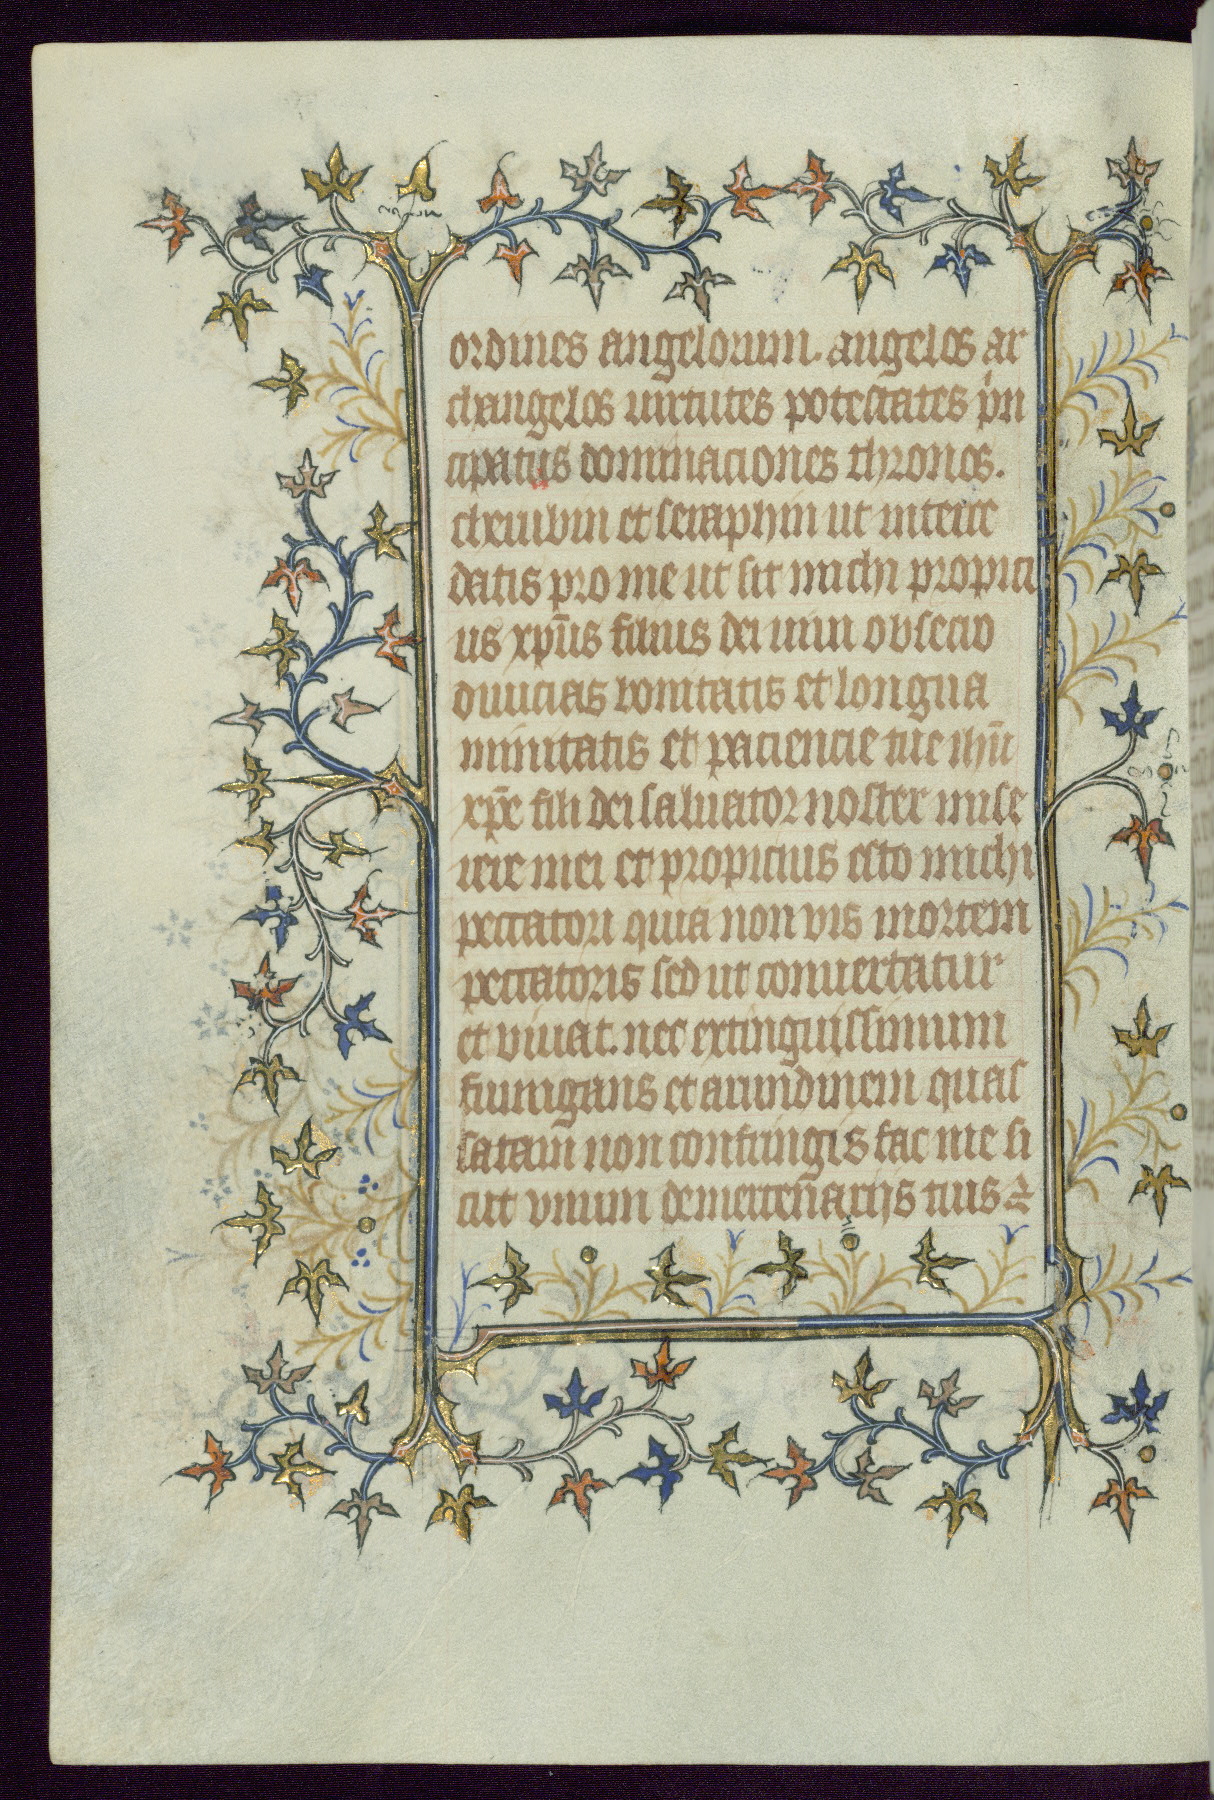 ordines angelorum. angelos ar
changelos uirtutes potestates pⁱn
cipatus dominaciones thronos.
cherubin et seraphin ut interce
datis pro me ut sit michi propici
us xp̄us filius dei uiui obsecro
diuicias bonitatis et longua
nimitatis et paciencie tue ihū
xp̄e fili dei saluator noster mise
rere mei et propicius esto michi
peccatori quia non vis mortem
peccatoris sed ut conuertatur
et viuat. nec extinguis linum
fumigans et arundinem quas
satam non confringis fac me si
cut vnum de mercen̄arijs tuis ⁊